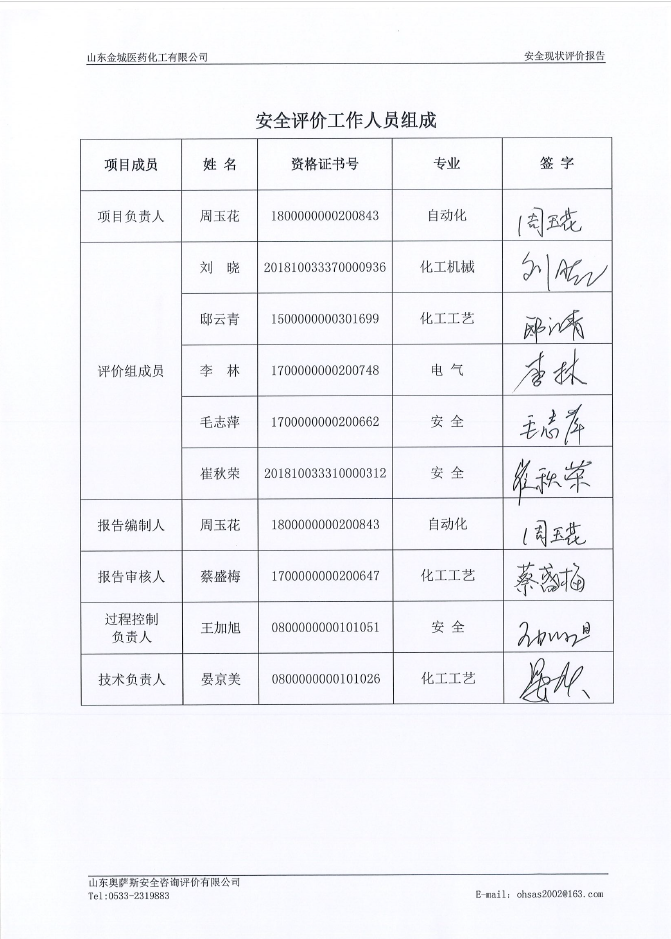 山东金城医药化工有限公司 安全现状评价报告
安全评价工作人员组成
项目成员 姓 名 资格证书号 专业 签 字
项目负责人 周玉花 1800000000200843 自动化 周玉花
刘 晓 201810033370000936 化工机械 刘晓
邸云青 1500000000301699 化工工艺 邸云青
评价组成员 李 林 1700000000200748 电 气 李林
毛志萍 1700000000200662 安 全 毛志萍
崔秋荣 201810033310000312 安 全 崔秋荣
报告编制人 周玉花 1800000000200843 自动化 周玉花
报告审核人 蔡盛梅 1700000000200647 化工工艺 蔡盛梅
过程控制
负责人 王加旭 0800000000101051 安 全
技术负责人 晏京美 0800000000101026 化工工艺
山东奥萨斯安全咨询评价有限公司
Tel:0533-2319883 E-mail: ohsas2002@163.com